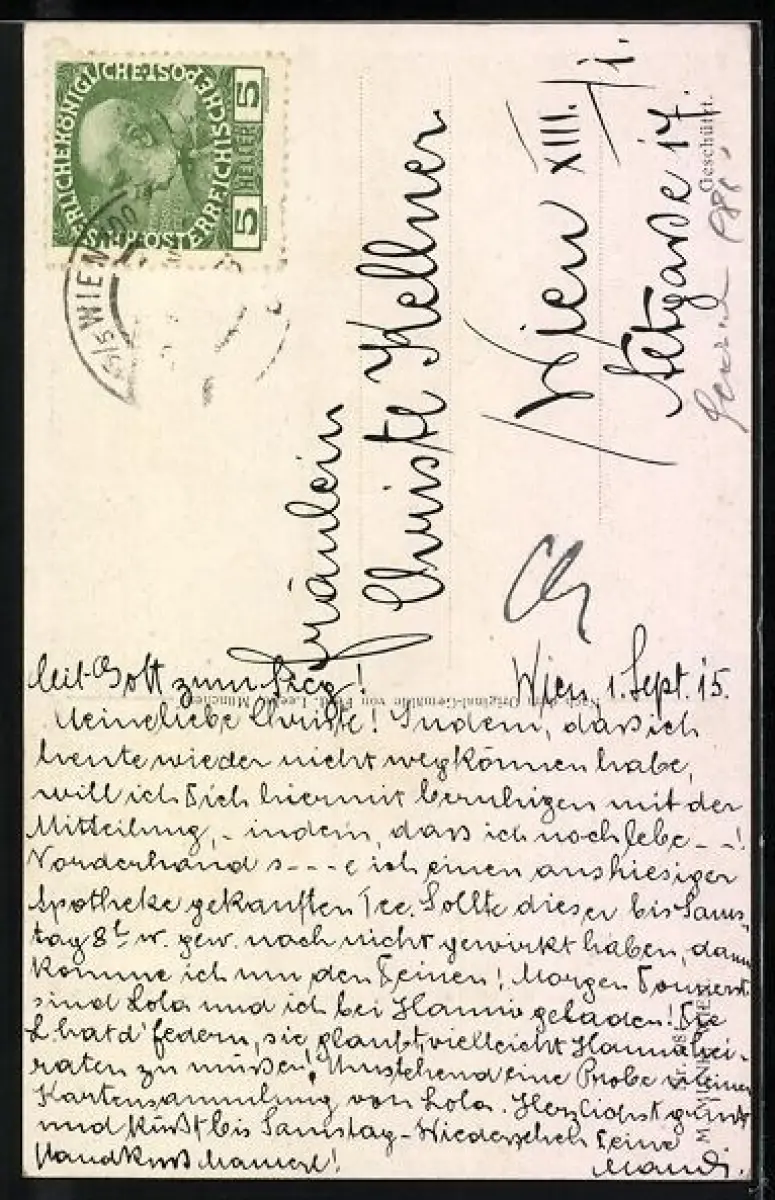 KAISERLICHEKÖNIGLICHE ÖSTERREICHISCHE POST
5 HELLER 5
WIEN
Fräulein
Christl Kellner
Wien XIII./1.
17.
Geschützt.
Mit Gott zum Sieg! Wien 1. Sept. 15.
Nach dem Original-Gemälde von München
Meine liebe Christl! Indem, dass ich
heute wieder nicht wegkönnen habe,
will ich Dich hiermit beruhigen mit der
Mitteilung, – indem, dass ich noch lebe – –!
Vorderhand s – – – e ich einen aus hiesiger
Apotheke gekauften Tee. Sollte dieser bis Sams-
tag 8h w. gew. noch nicht gewirkt haben, dann
komme ich um den Deinen! Morgen Donnerst.
sind Lola und ich bei Hanni geladen! Die
L. hat d' federn, sie glaubt, vielleicht Hanna hei-
raten zu müssen! Umstehend eine Probe meiner
Kartensammlung von Lola. Herzlichst grüsst
und küsst bis Samstag-Wiedersehen Deine
Handkuss Mama!